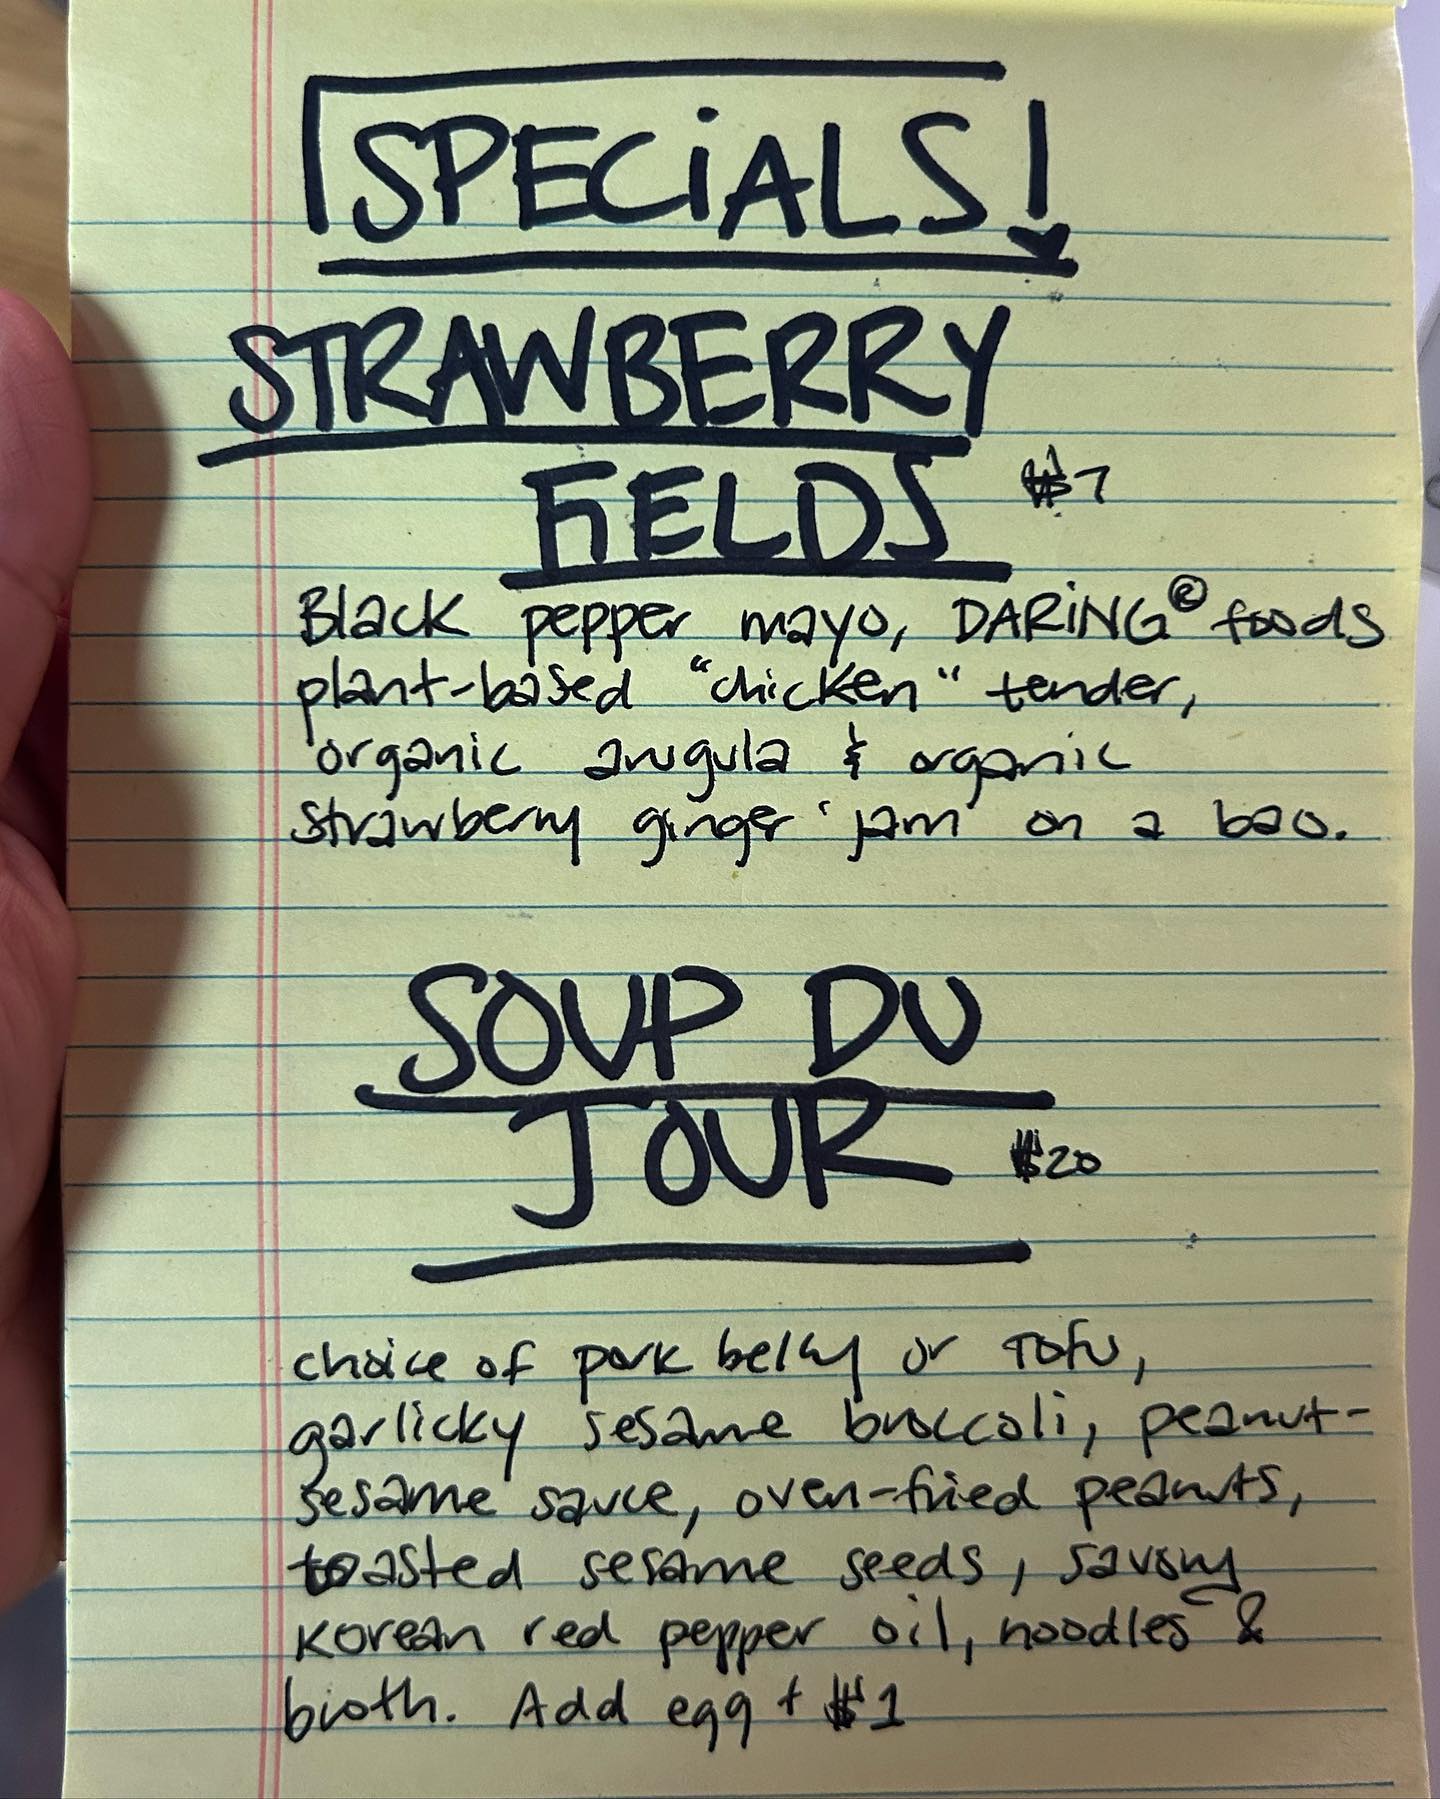 SPECiALS!
STRAWBERRY
FiELDS $7
Black pepper mayo, DARiNG® foods
plant-based "chicken" tender,
organic arugula & organic
strawberry ginger 'jam' on a bao.
SOUP DU
JOUR $20
choice of pork belly or Tofu,
garlicky sesame broccoli, peanut-
sesame sauce, oven-fried peanuts,
toasted sesame seeds, savory
Korean red pepper oil, noodles &
broth. Add egg + $1